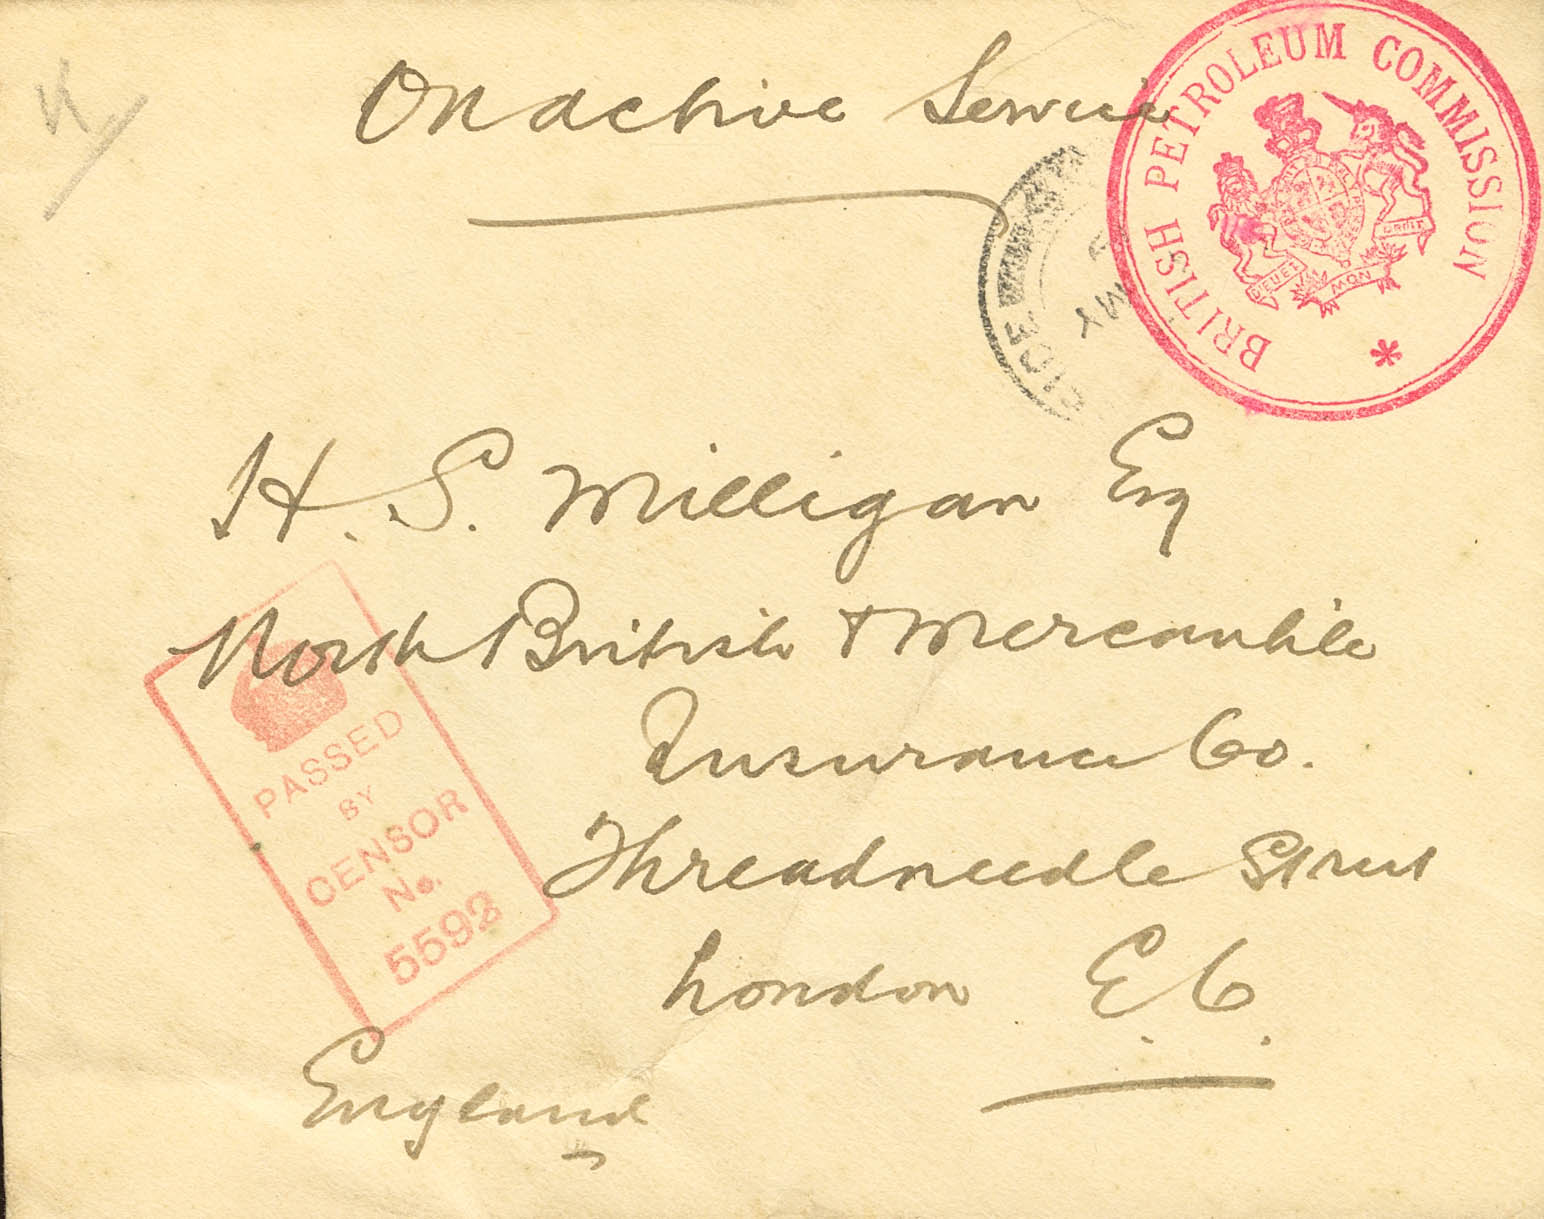 On active Service
BRITISH PETROLEUM COMMISSION
*
DIEU ET
MON
DROIT
MY
H. S. Milligan Esq
North British & Mercantile
Insurance Co.
Threadneedle Street
London E. C.
England
PASSED
BY
CENSOR
No.
5592